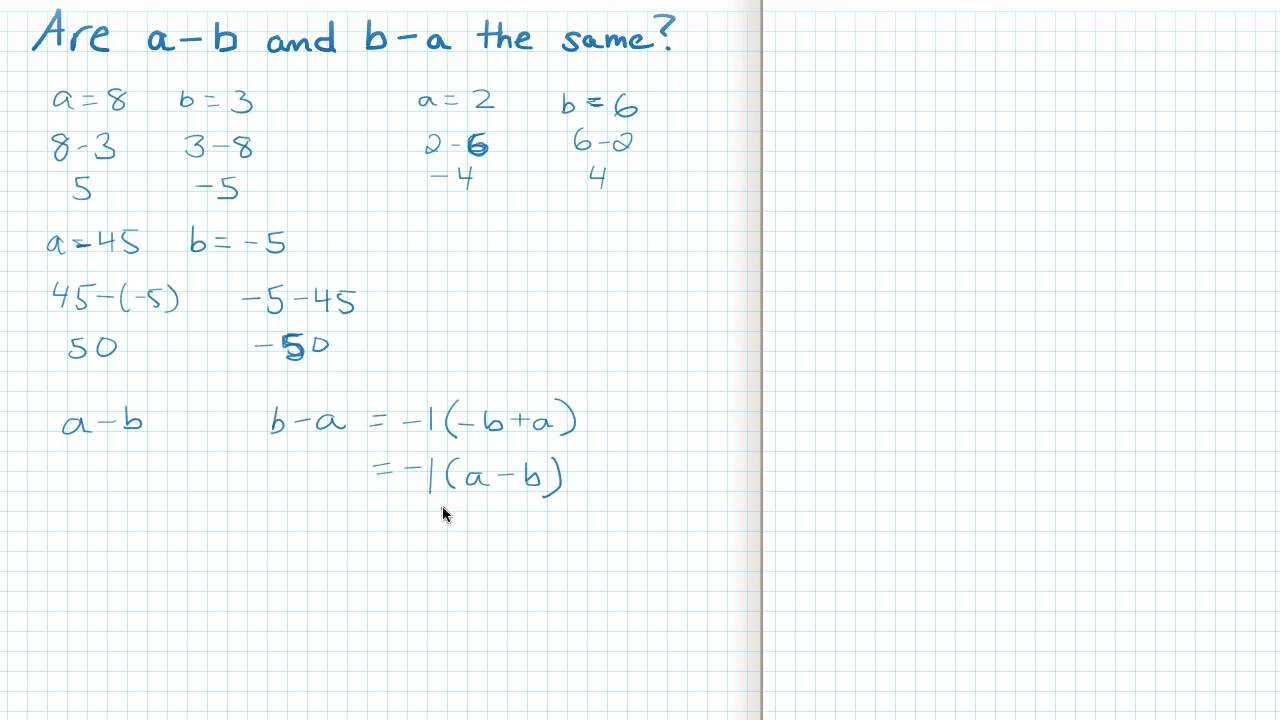 Are a-b and b-a the same?
a=8 b=3 a=2 b=6
8-3 3-8 2-6 6-2
5 -5 -4 4
a=45 b=-5
45-(-5) -5-45
50 -50
a-b b-a = -1(-b+a)
= -1(a-b)